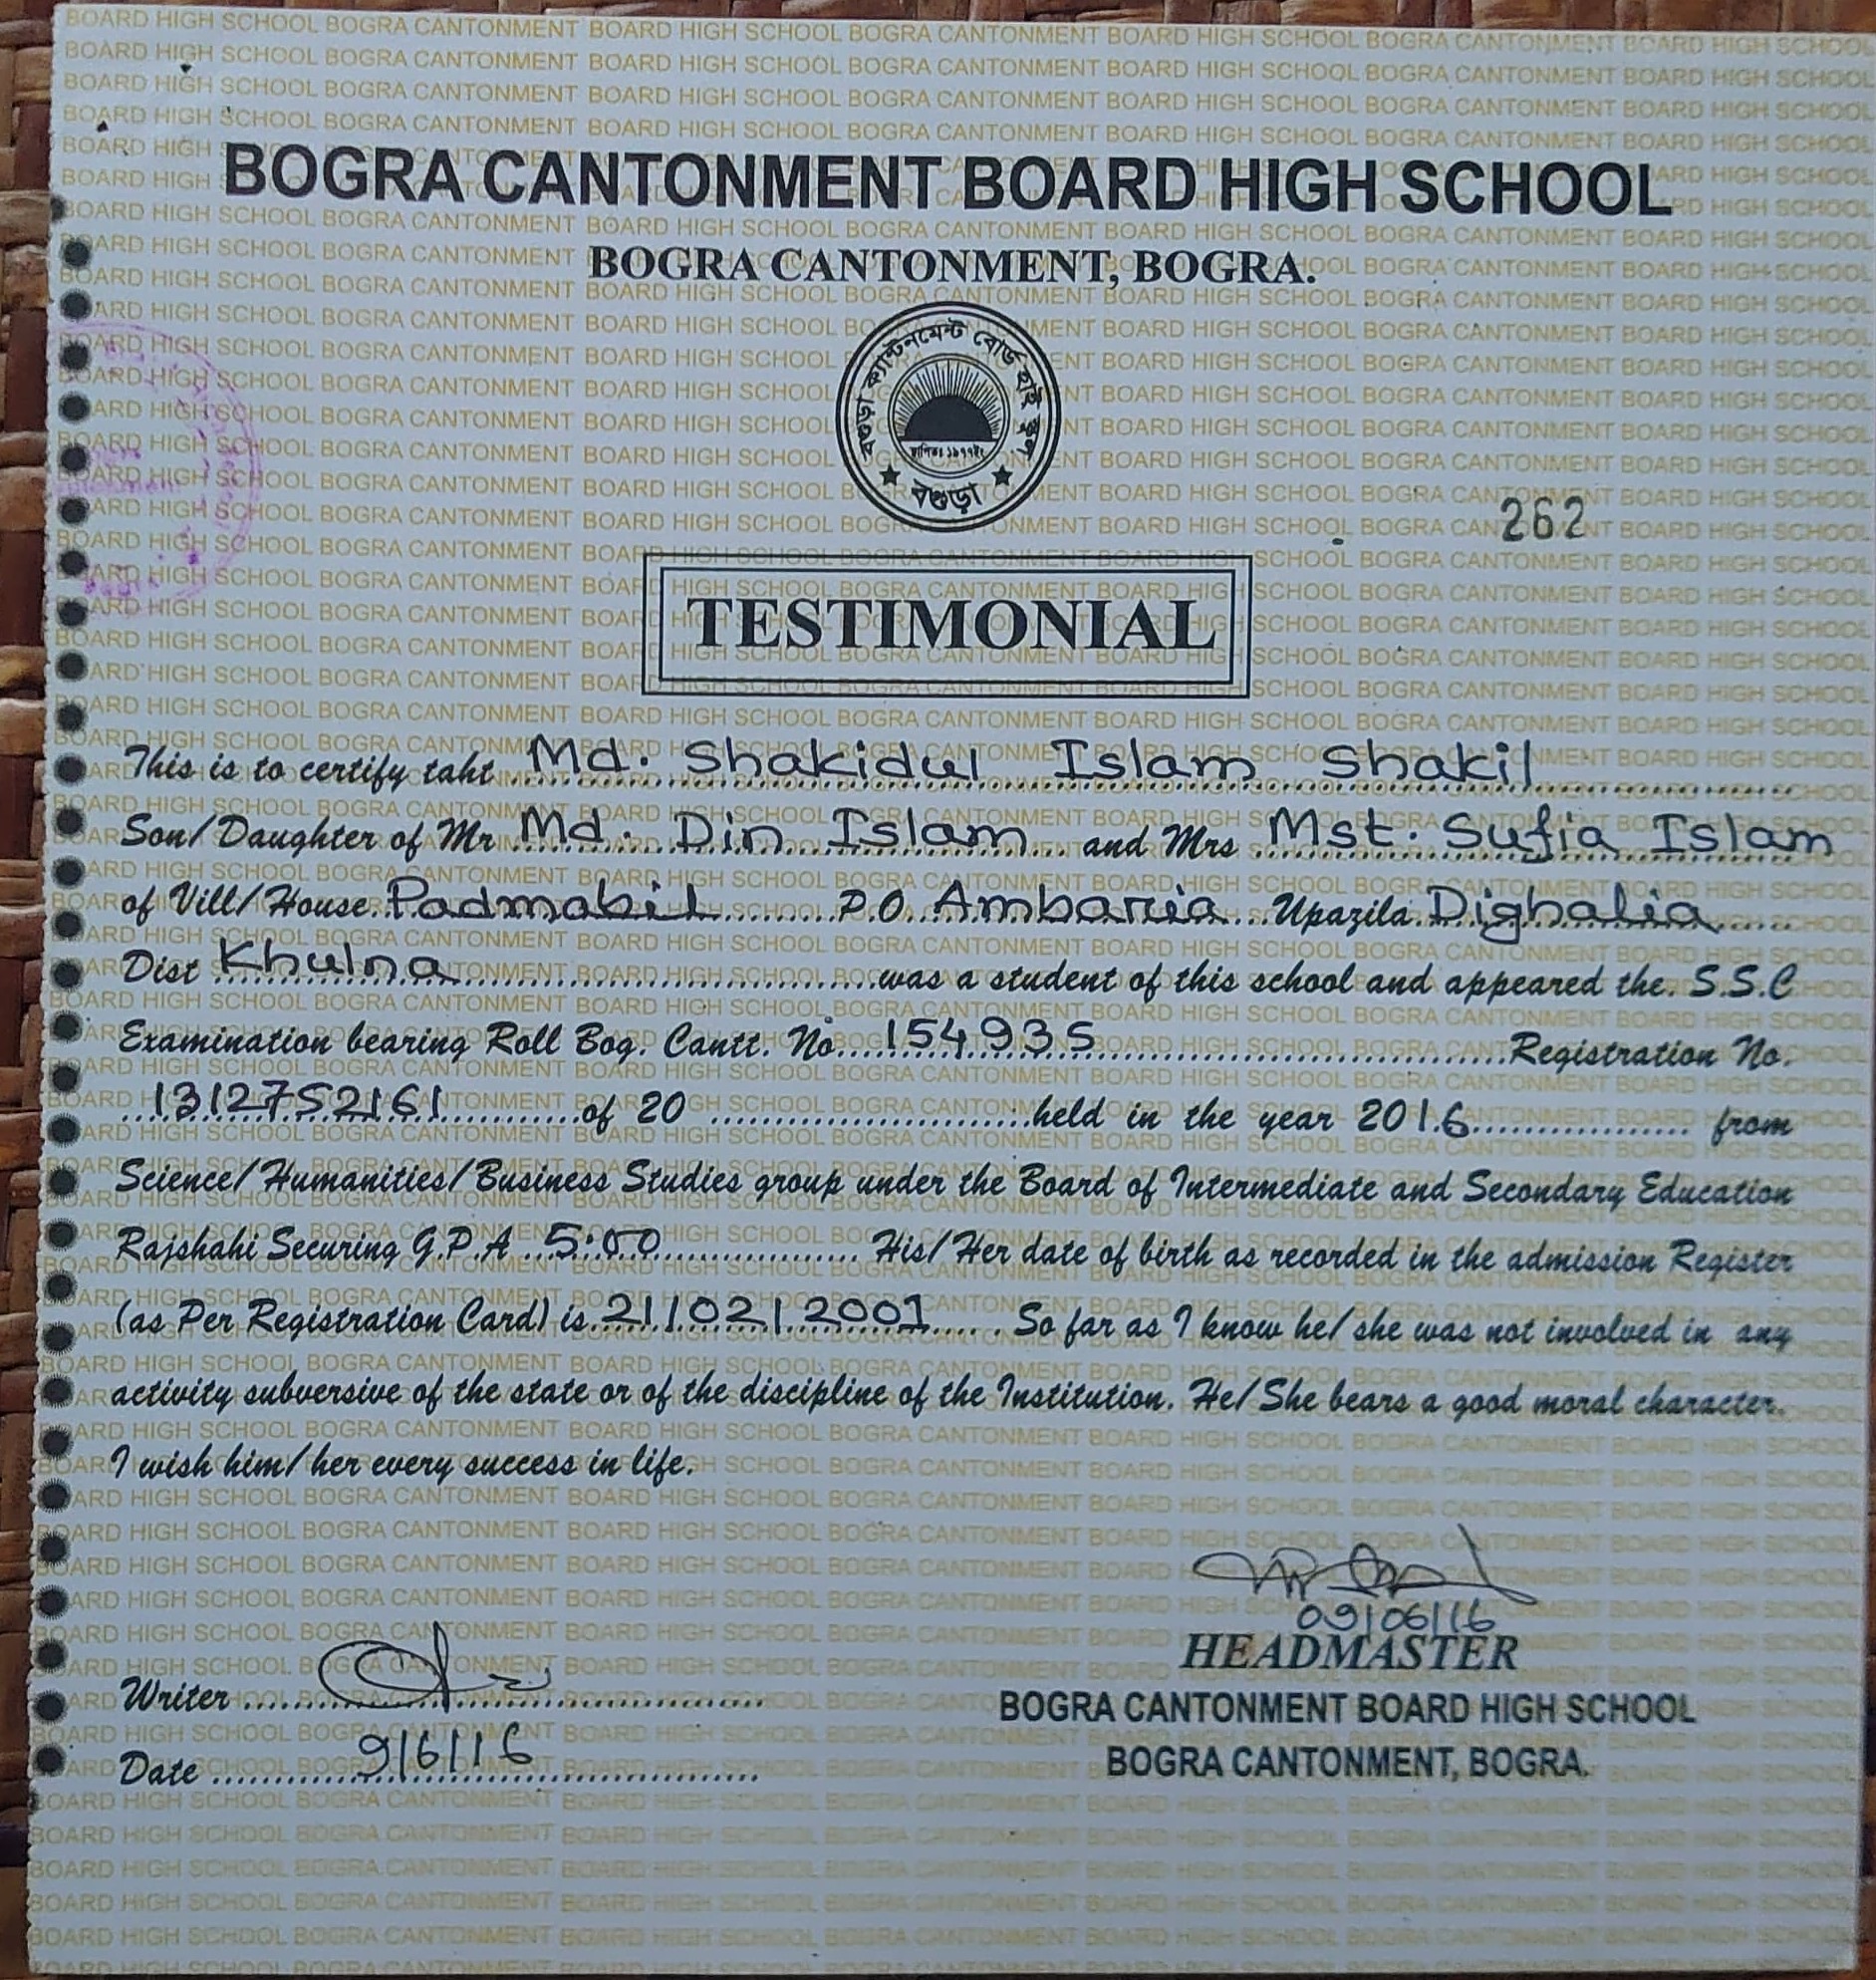 BOGRA CANTONMENT BOARD HIGH SCHOOL
BOGRA CANTONMENT, BOGRA.
বগুড়া ক্যান্টনমেন্ট বোর্ড হাই স্কুল
স্থাপিতঃ ১৯৭৭ইং
বগুড়া
262
TESTIMONIAL
This is to certify taht Md. Shakidul Islam Shakil
Son/Daughter of Mr Md. Din Islam and Mrs Mst. Sufia Islam
of Vill/House Padmabil P.O. Ambaria Upazila Dighalia
Dist Khulna was a student of this school and appeared the. S.S.C
Examination bearing Roll Bog. Cantt. No 154935 Registration No.
1312752161 of 20 held in the year 2016 from
Science/Humanities/Business Studies group under the Board of Intermediate and Secondary Education
Rajshahi Securing G.P.A 5.00 His/Her date of birth as recorded in the admission Register
(as Per Registration Card) is 21/02/2001 So far as I know he/she was not involved in any
activity subversive of the state or of the discipline of the Institution. He/She bears a good moral character.
I wish him/her every success in life.
09/06/16
HEADMASTER
Writer
BOGRA CANTONMENT BOARD HIGH SCHOOL
Date 9/6/16
BOGRA CANTONMENT, BOGRA.